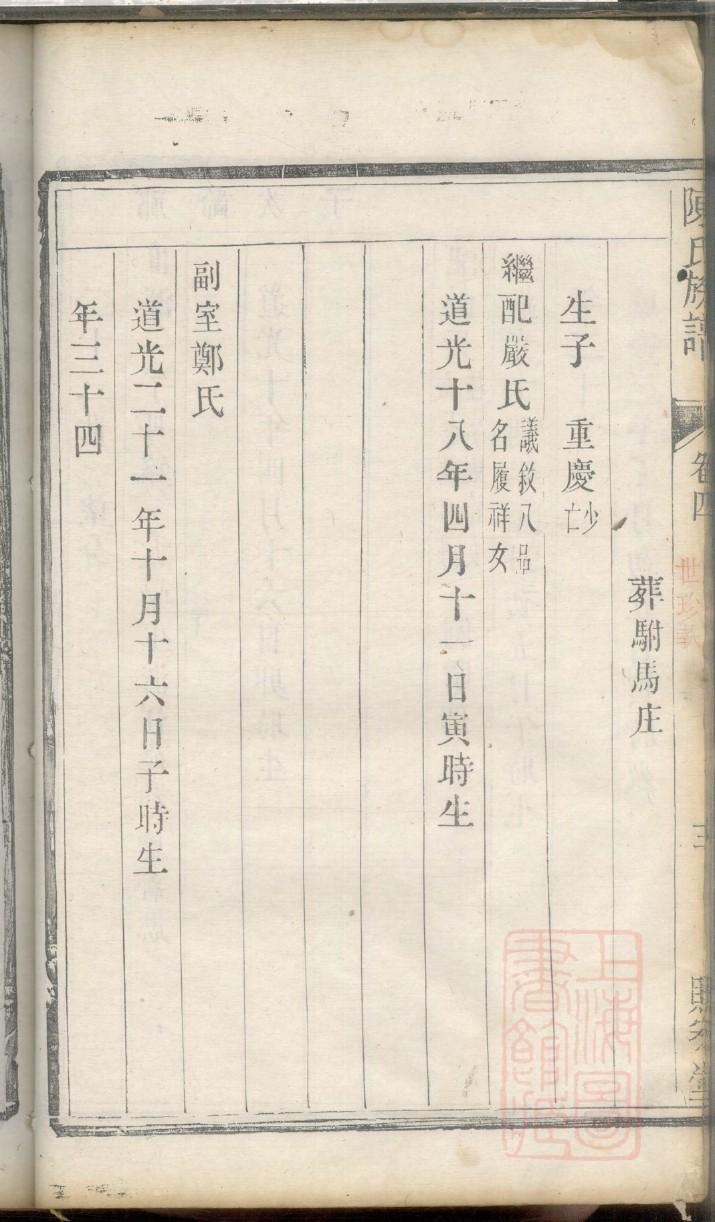 陳氏族譜
卷四
世珍
三
葬駙馬庄
生子 重慶 少亡
繼配嚴氏 議敘八品名履祥女
道光十八年四月十一日寅時生
副室鄭氏
道光二十一年十月十六日子時生
年三十四
上海圖書館藏